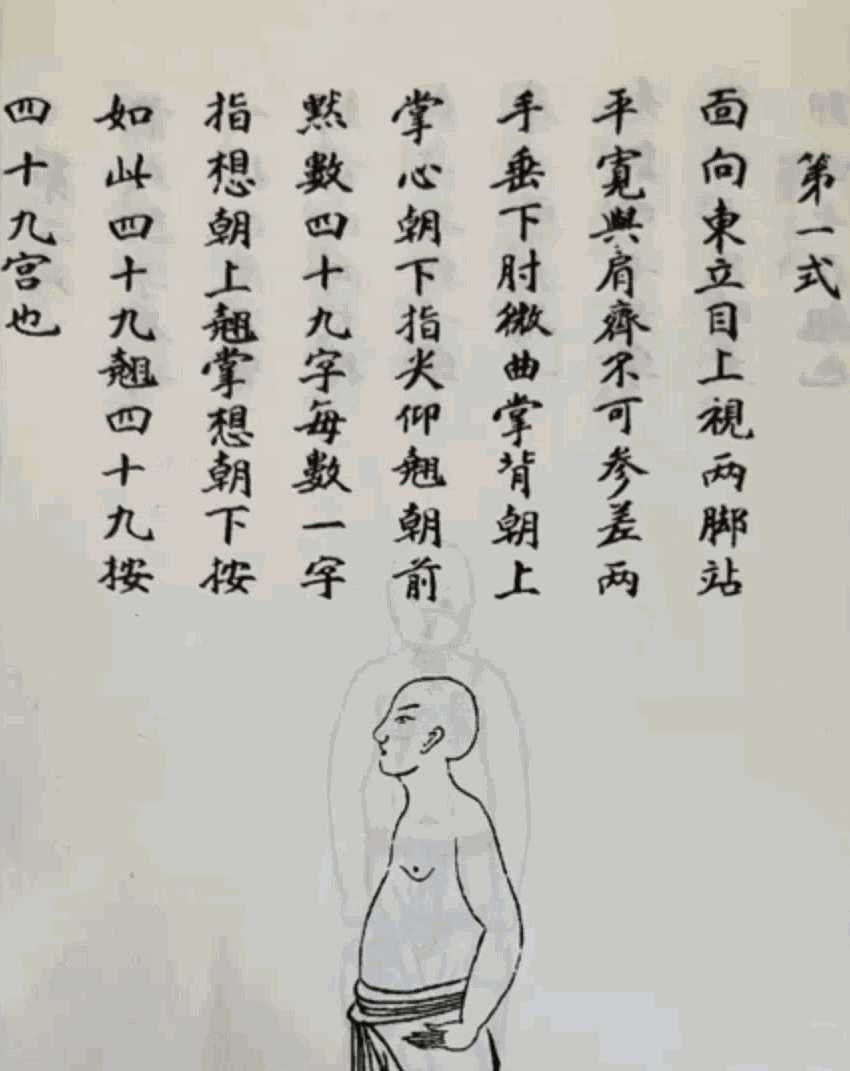 第一式
面向東立目上視两脚站
平寛與肩齊不可参差两
手垂下肘微曲掌背朝上
掌心朝下指尖仰翹朝前
黙數四十九字每數一字
指想朝上翹掌想朝下按
如此四十九翹四十九按
四十九宫也